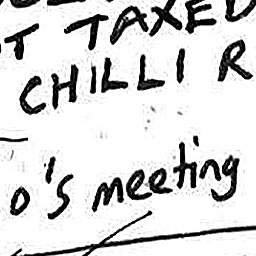 T TAXED
CHILLI R
o's meeting